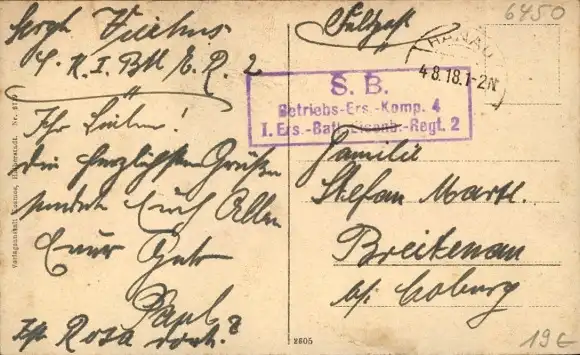 Sergt
4. K. I. Btl / E. R. 2
Ihr Lieben!
Die herzlichsten Grüße
sendet Euch Allen
Euer
Paul
Ist Rosa dort?
Verlagsanstalt
2605
Feldpost
6450
HANAU
4.8.18.1-2N
S. B.
Betriebs-Ers.-Komp. 4
I. Ers.-Batl. Eisenb.-Regt. 2
Familie
Stefan Martl.
Breitenau
b/i Coburg
19€